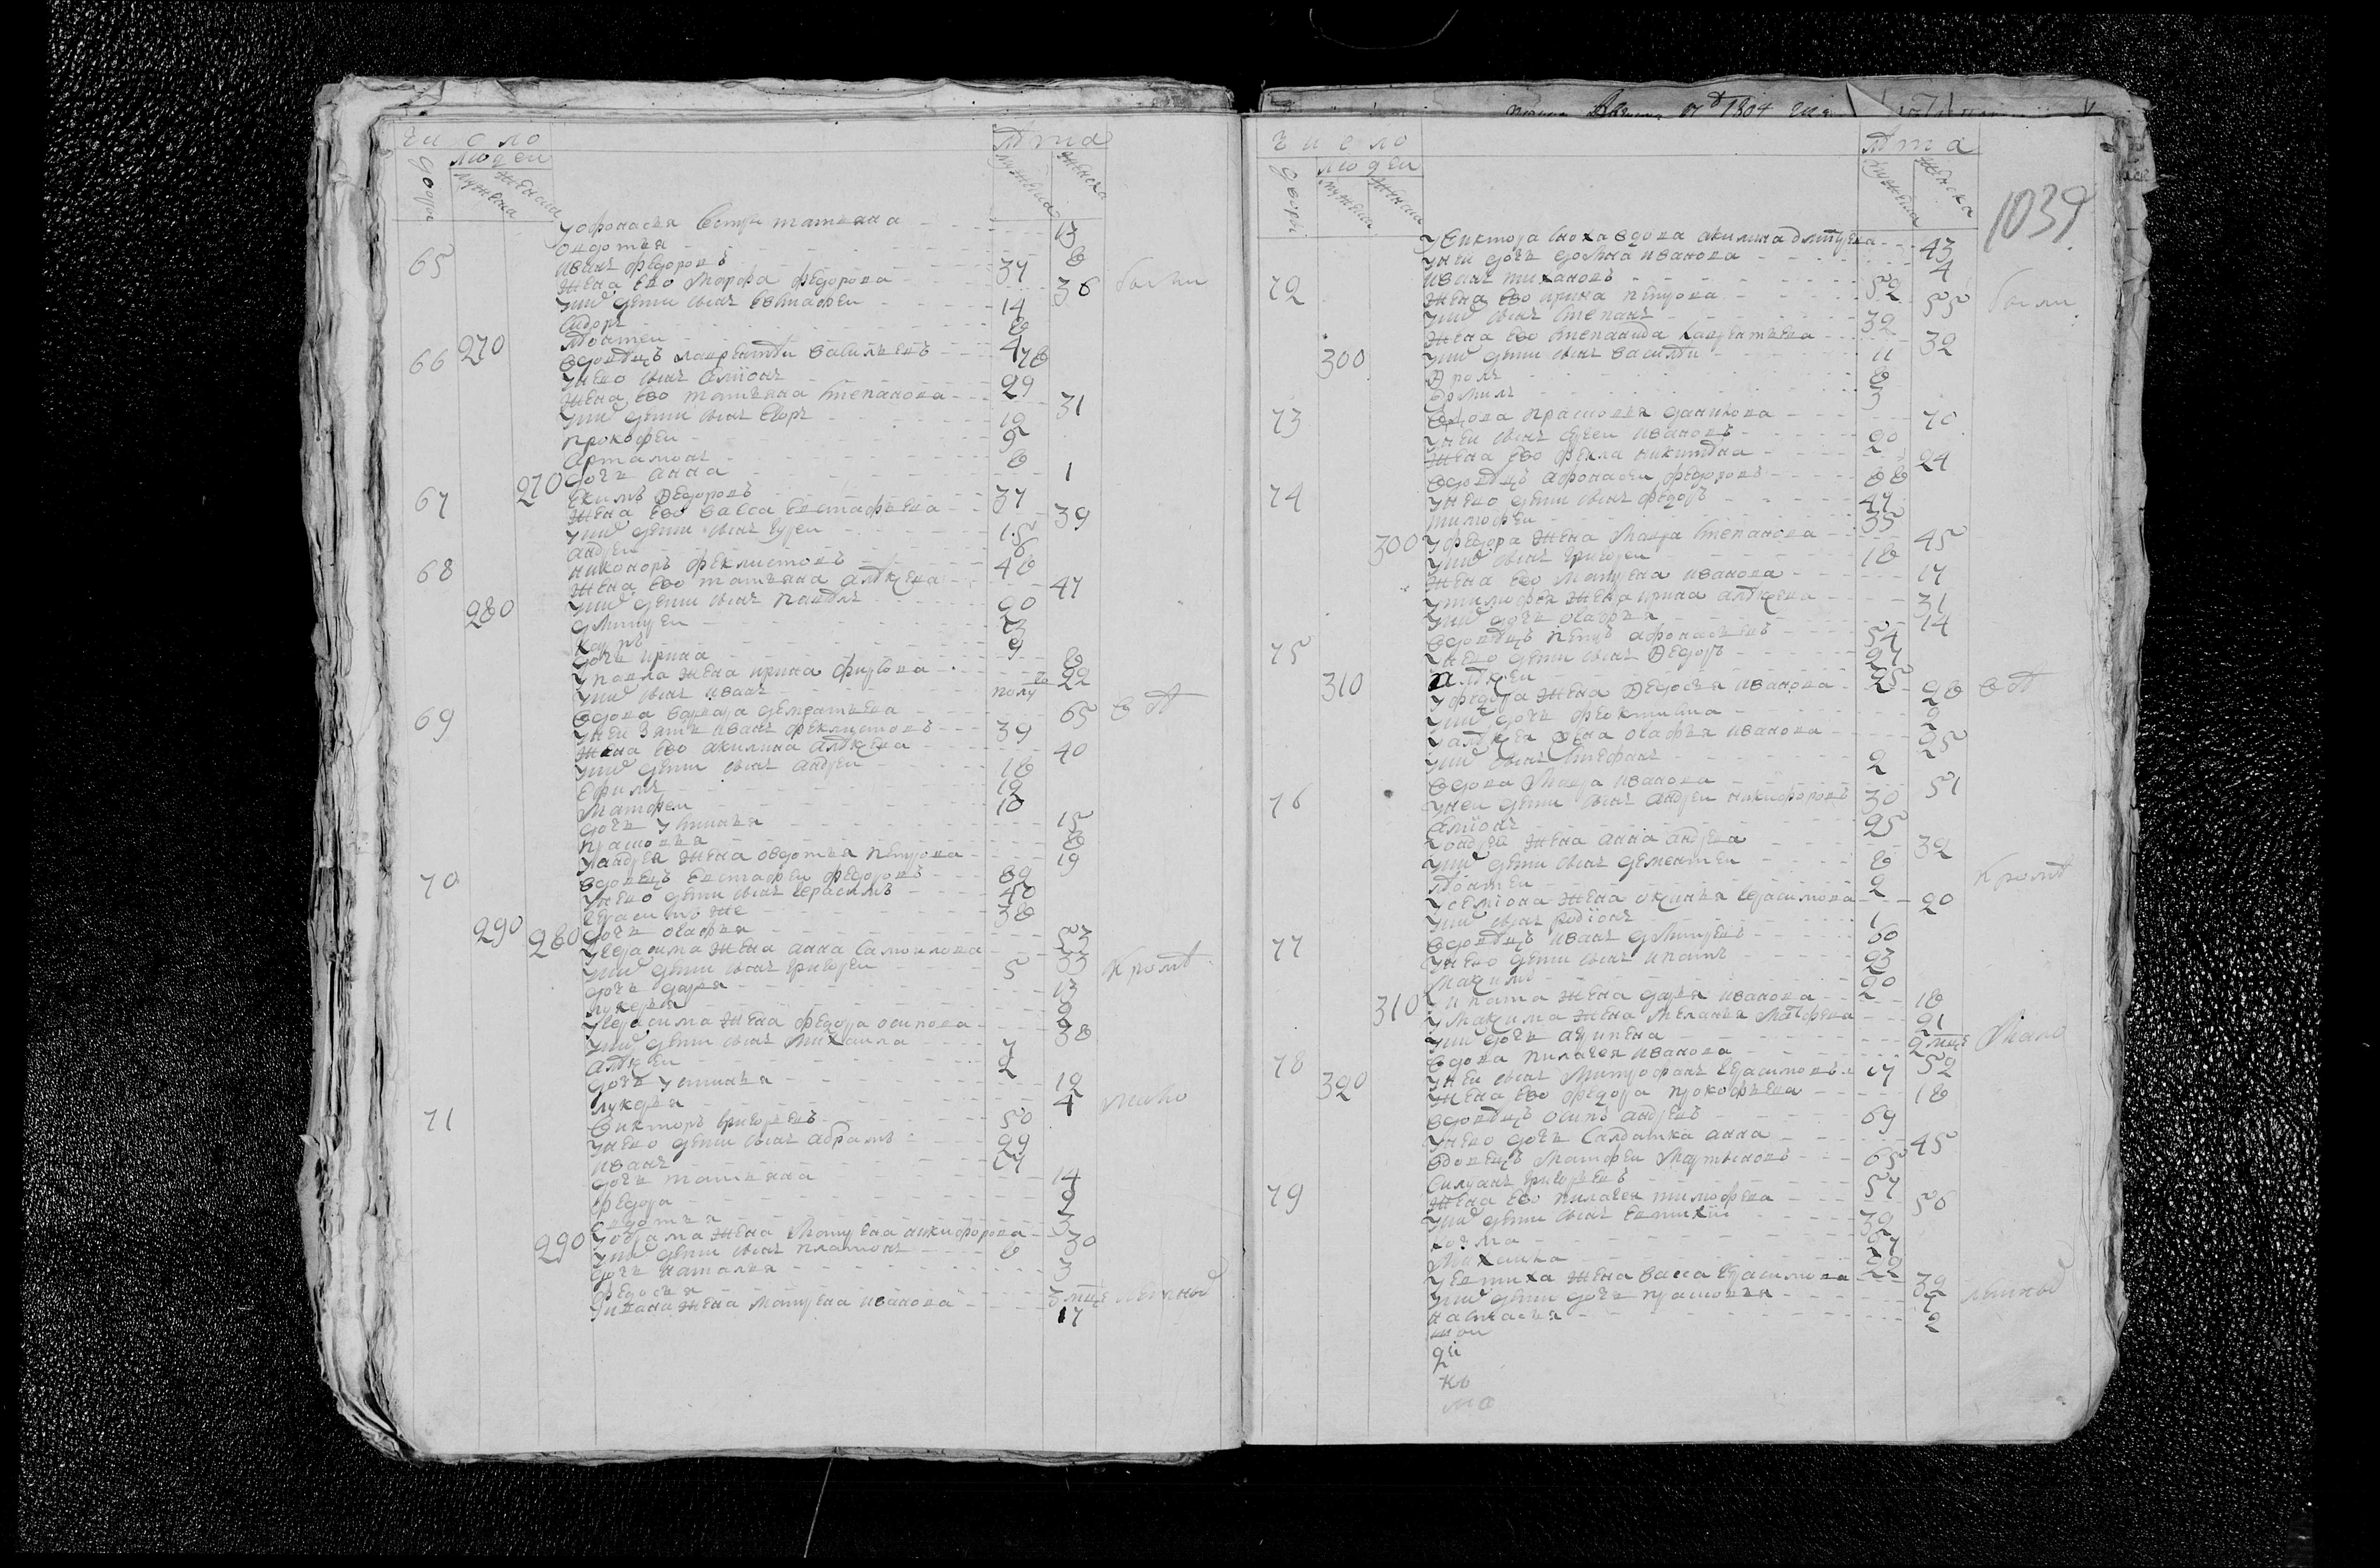 число
людеи
лѣта
дворы
мужеска
женска
мужеска
женска
у афонасья сестры татьяна 13
овдотья 8
65 иванъ федоровъ 37
жена ево марфа федорова 36 были
у них дети сынъ евстафеи 14
сидоръ 8
270 моѵсеи 4
66 вдовецъ лаврентеи васильевъ 78
у нево сынъ семионъ 29
жена ево татьяна степанова 31
у них дети сынъ егоръ 12
прокофеи 9
артамонъ 8
270 дочь анна 1
67 екимъ федоровъ 37
жена ево васса евстафьева 39
у них дети сынъ гуреи 15
андреи 6
68 никоноръ феклистовъ 48
жена ево татьяна алѣксеева 47
280 у них дети сынъ павелъ 20
дмитреи 13
карпъ 9
дочь ирина 8
у павла жена ирина фирсова 22
у них сынъ иванъ полу
69 вдова варвара дементьева 65 въ
у неи зять иванъ феклистовъ 39
жена ево акилина алѣксеева 40
у них дети сынъ андреи 18
ефимъ 12
матфеи 10
дочь устинья 15
прасковья 8
у андрея жена овдотья петрова 19
70 вдовецъ евстафеи федоровъ 69
у нево дети сынъ герасимъ 40
герасимъ же 38
290 280 дочь агафья
у герасима жена анна самоилова 33
у них дети сынъ григореи 5 кромѣ
дочь дарья 13
лукерья 9
у герасима жена федора осипова 38
у них дети сынъ михаила 7
алѣксеи 2
дочь устинья 12
лукерья 4
71 викторъ григорьевъ 50
у нево дети сынъ абрамъ 29
иванъ 17
дочь татьяна 14
федора 9
овдотья 3
290 у абрама жена матрена никифорова 30
у них дети сынъ платонъ 8
дочь наталья 3
федосья 3 мце
у ивана жена матрена иванова 17
1039
число
людеи
лѣта
дворы
мужеска
женска
мужеска
женска
у виктора сноха вдова акилина дмитрева 43
у неи дочь домна иванова 4
72 иванъ тихановъ 52
жена ево ирина петрова 55 были
у них сынъ степанъ 32
жена ево степанида лаврентьева 32
300 у них дети сынъ василеи 11
фролъ 8
ермилъ 3
73 вдова прасковья данилова 70
у неи сынъ сергеи ивановъ 20
жена ево фекла никитина 24
74 вдовецъ афонасеи федоровъ 88
у нево дети сынъ федоръ 47
тимофеи 35
300 у федора жена мавра степанова 45
у них сынъ григореи 18
жена ево матрена иванова 17
у тимофея жена ирина алѣксеева 31
у них дочь агафья 14
75 вдовецъ петръ афонасьевъ 54
у нево дети сынъ федоръ 27
310 алѣксеи 25
у федора жена федосья иванова 28
у них дочь феоктиста 2
у алѣксея жена агафья иванова 25
у них сынъ стефанъ 2
вдова мавра иванова 51
76 у неи дети сынъ андреи никифоровъ 30
семионъ 25
у андрея жена анна андреева 32
у них дети сынъ дементеи 8
моѵсеи 2 кромѣ
у семиона жена аксинья герасимова 20
у них сынъ родионъ 1
77 вдовецъ иванъ дмитреевъ 60
у нево дети сынъ ипатъ 23
максимъ 20
310 у ипата жена дарья иванова 18
у максима жена меланья матфеева 21
у них дочь акулина 2 мце
78 вдова пилагея иванова 52
320 у неи сынъ митрофанъ герасимовъ 17
жена ево федора прокофьева 18
вдовецъ осипъ андреевъ 69
у нево дочь салдатка анна 45
вдовецъ матфеи мартыновъ 65
79 силуанъ григорьевъ 57
жена ево пилагея тимофеева 56
у них дети сынъ евтихии 32
козма 27
михаила 22
у евтиха жена васса герасимова 32
у них дети дочь прасковья 7
настасья 2